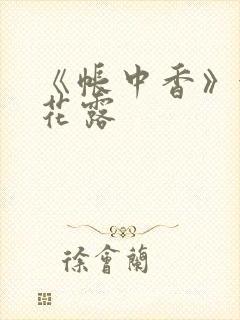 《帳中香》
花露
徐會蘭